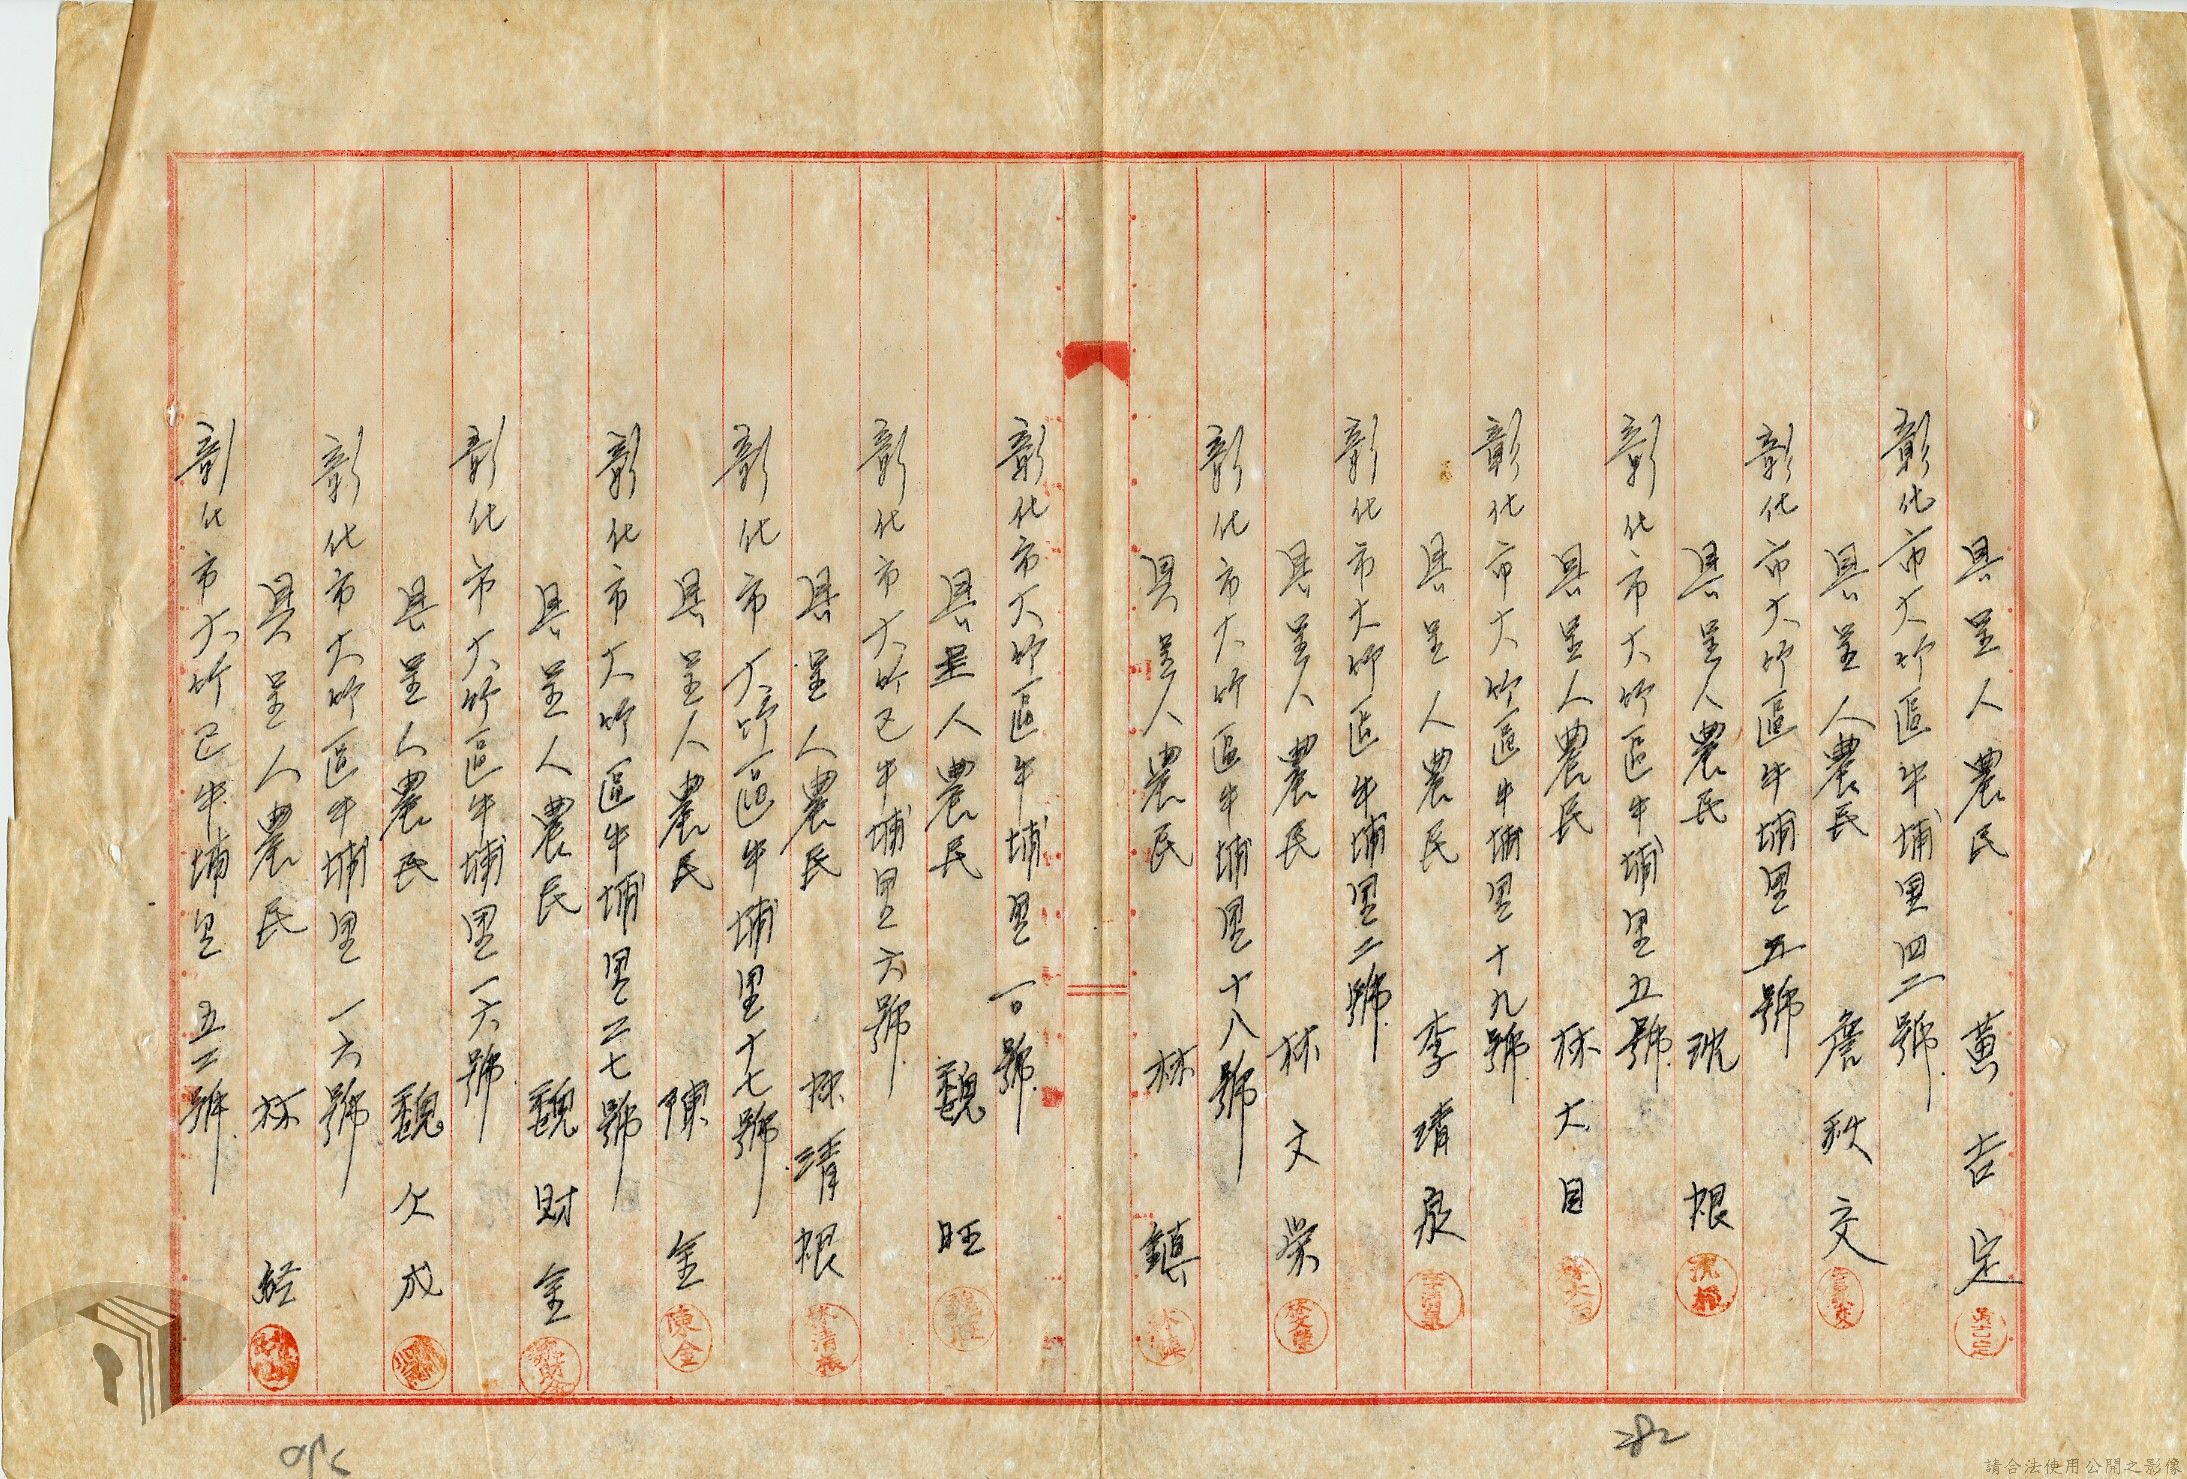 具呈人農民 黃吉定
彰化市大竹區牛埔里四二號
具呈人農民 詹秋交
彰化市大竹區牛埔里五號
具呈人農民 沈根
彰化市大竹區牛埔里五號
具呈人農民 林大目
彰化市大竹區牛埔里十九號
具呈人農民 李清泉
彰化市大竹區牛埔里二號
具呈人農民 林文榮
彰化市大竹區牛埔里十八號
具呈人農民 林鎮
彰化市大竹區牛埔里一〇號
具呈人農民 魏旺
彰化市大竹区牛埔里六號
具呈人農民 林清根
彰化市大竹區牛埔里十七號
具呈人農民 陳金
彰化市大竹區牛埔里二七號
具呈人農民 魏財金
彰化市大竹區牛埔里一六號
具呈人農民 魏欠成
彰化市大竹區牛埔里一六號
具呈人農民 林経
彰化市大竹区牛埔里五二號
沈根
李清泉
林文榮
林鎮
魏旺
林清根
陳金
282
請合法使用公開之影像